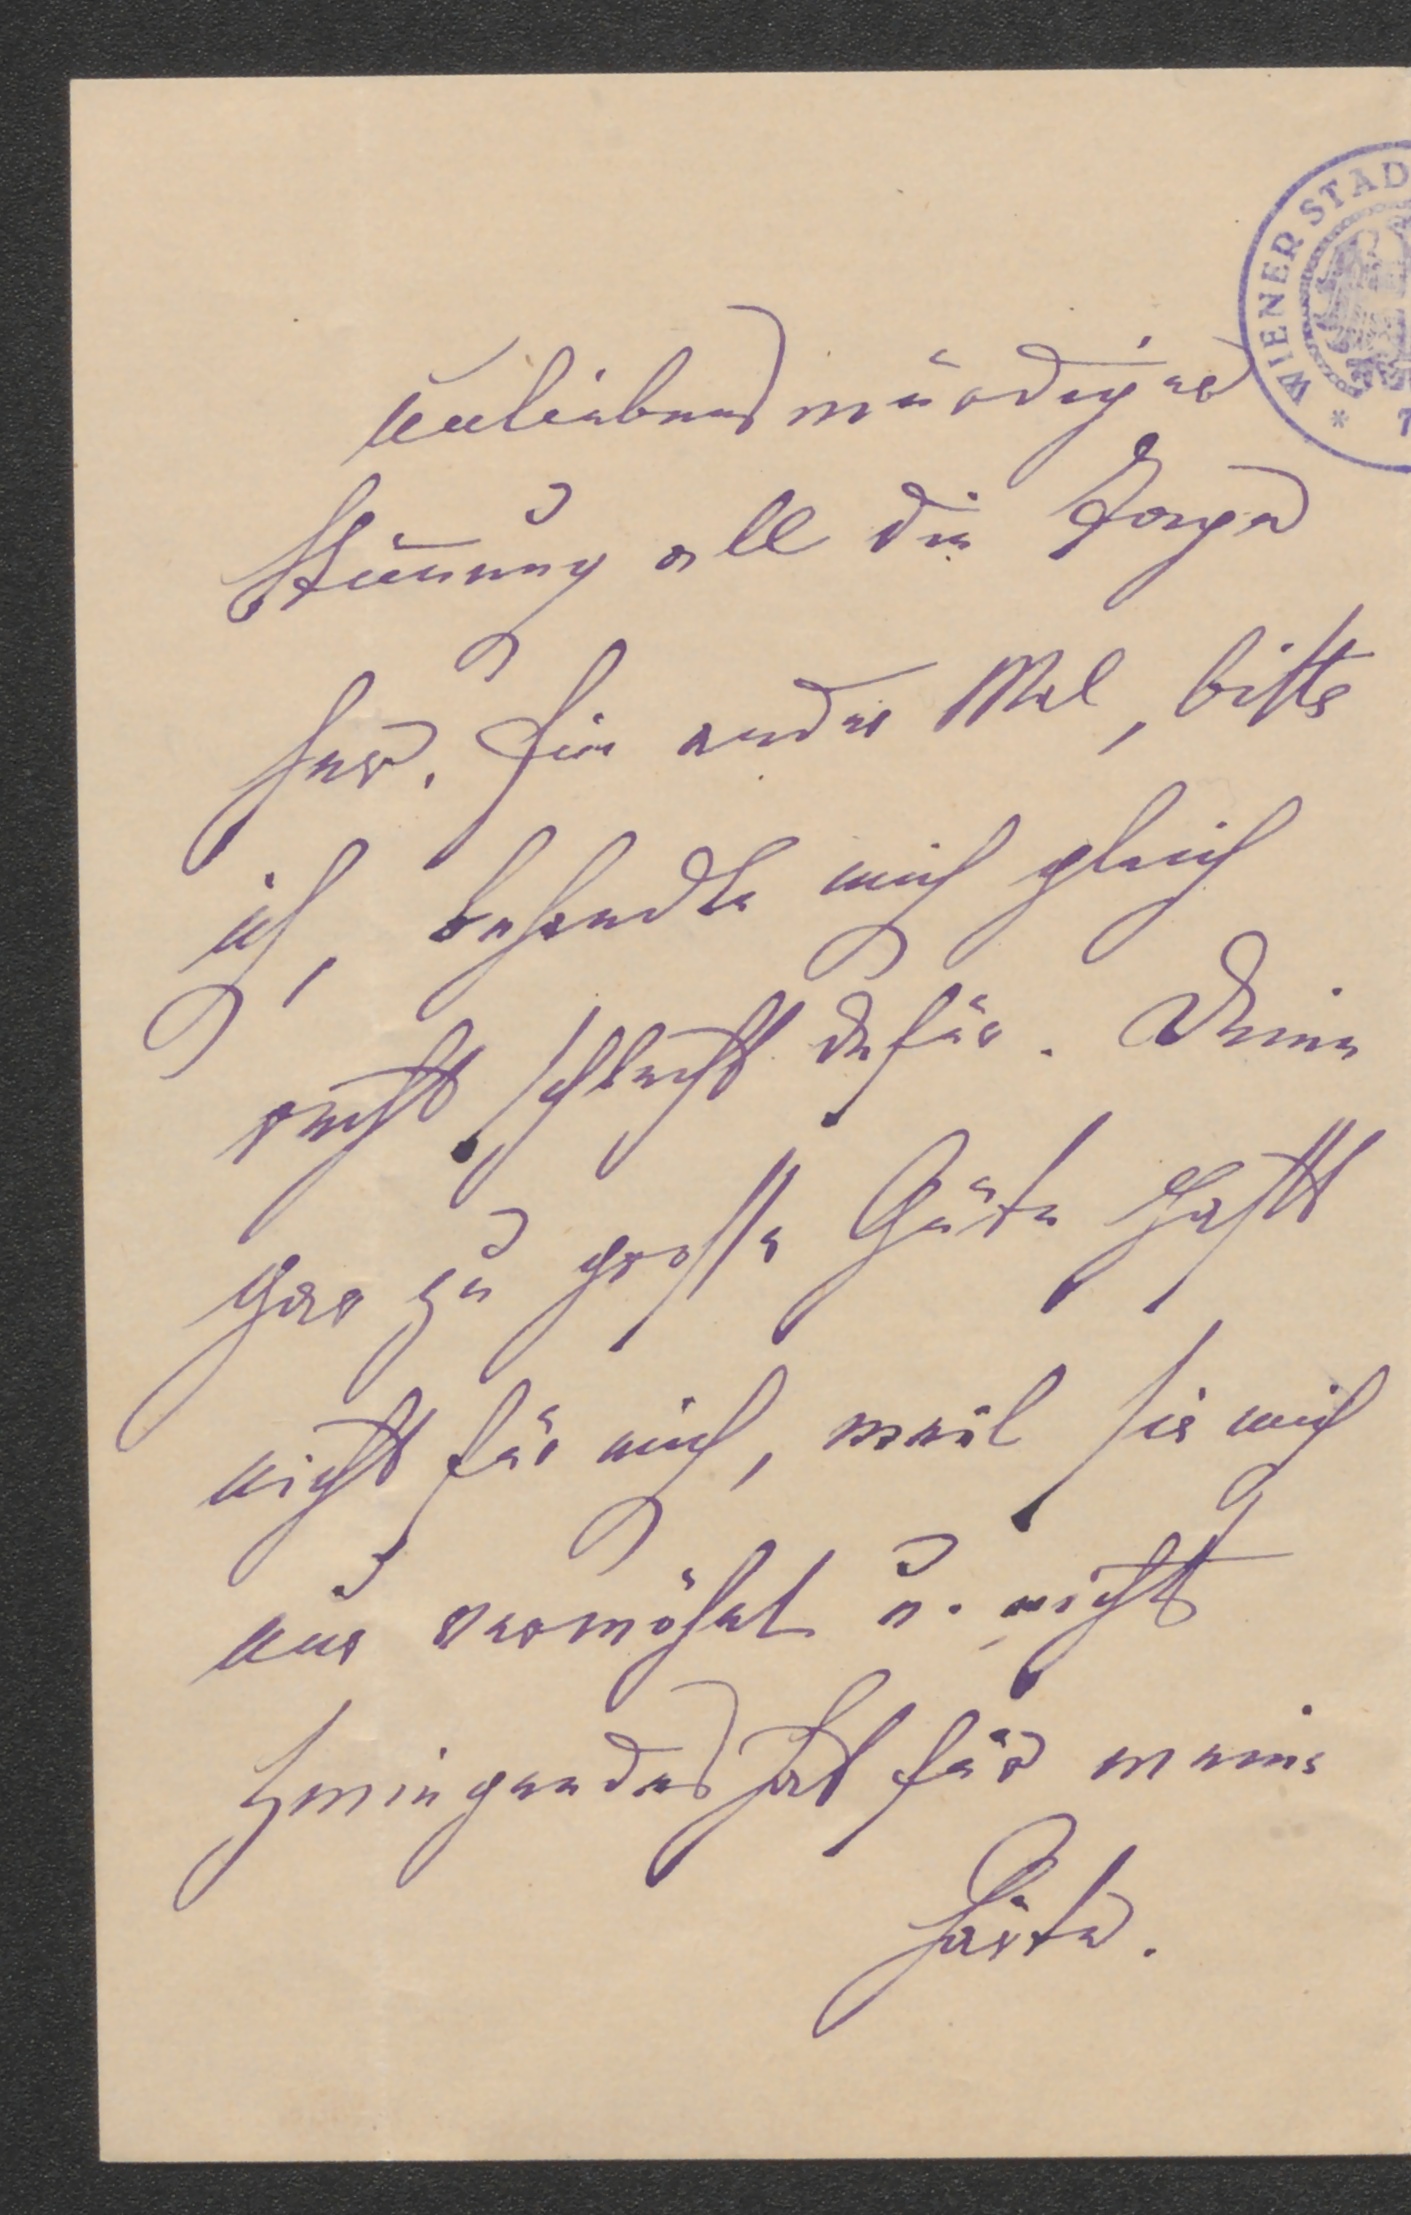 WIENER STAD
unliebenswürdiger
Stimmung all die Tage
her. Ein ander Mal, bitte
ich, behandle mich gleich
recht schlecht dafür. Deine
gar zu große Güte paßt
nicht für mich, weil sie mich
nur verwöhnt u. nicht
Zwingendes hat für meine
Härte.